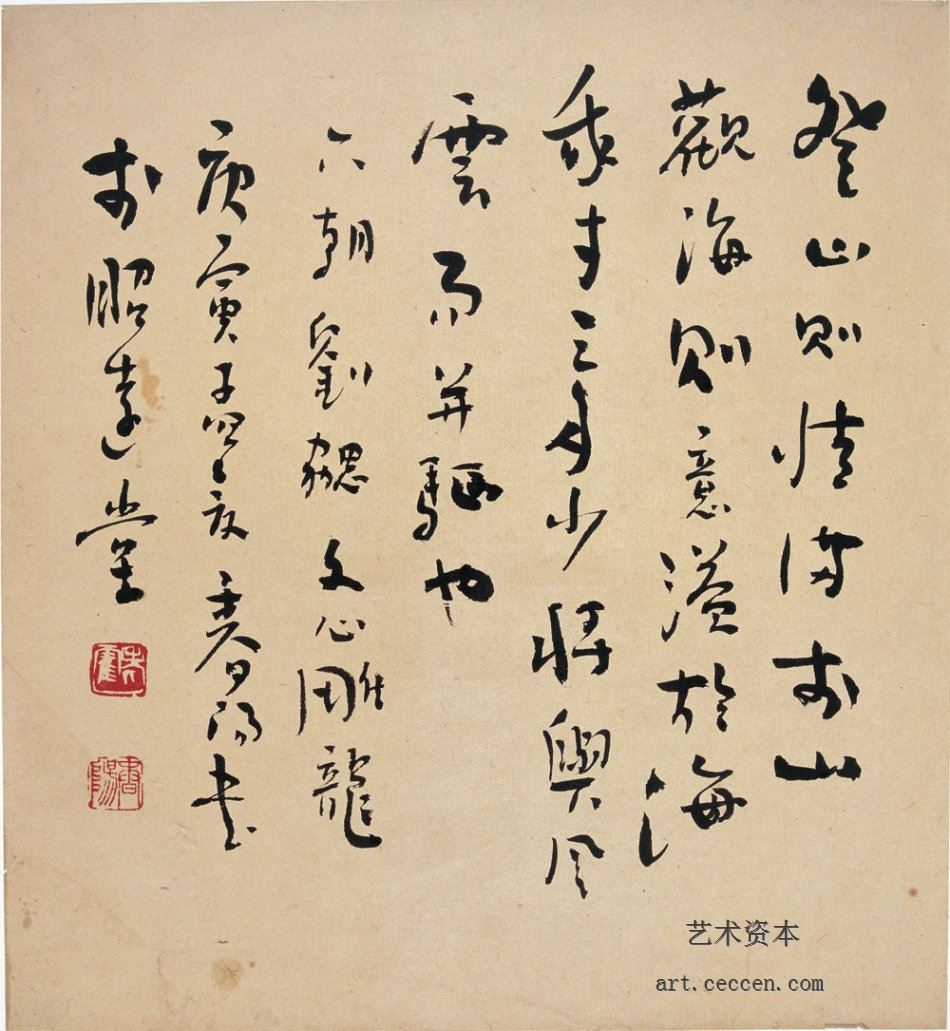 登山則情滿於山
觀海則意溢於海
我才之多少將與風
雲而并驅也
六朝劉勰文心雕龍
庚寅孟夏春陽書
於昭堂
艺术资本
art.ceccen.com